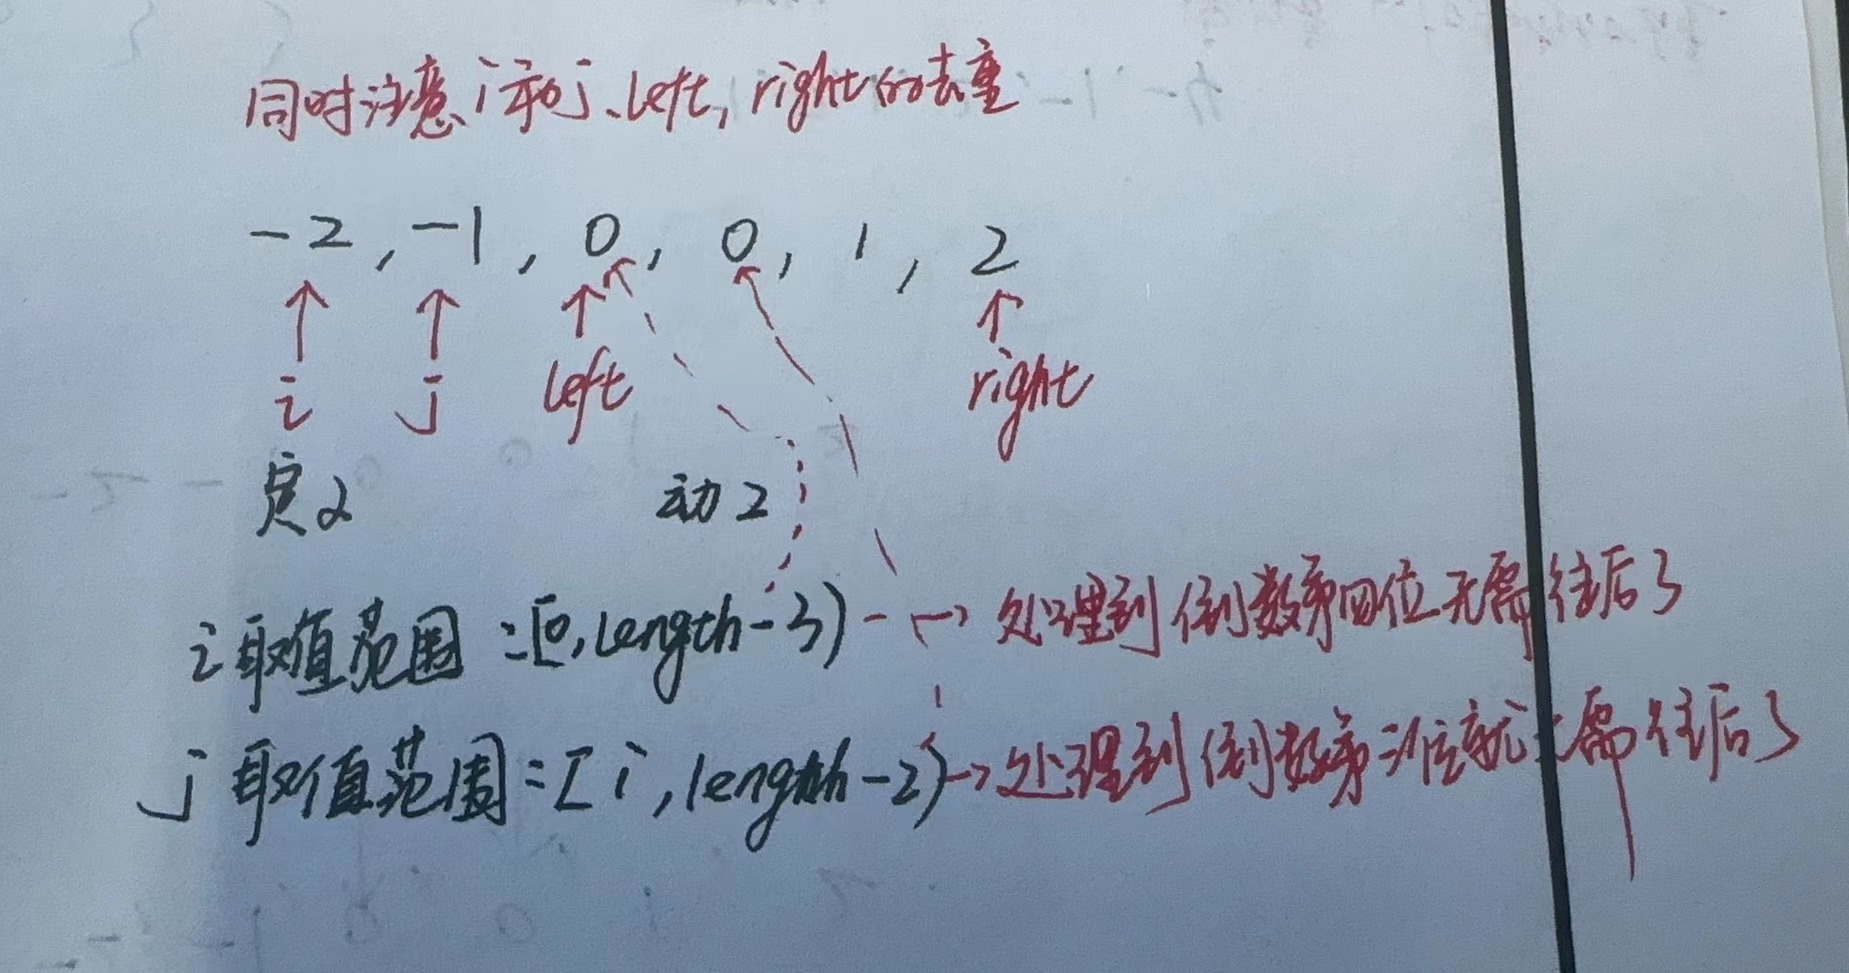 同时注意i和j、left, right的去重
-2, -1, 0, 0, 1, 2
i j left right
定2 动2
i取值范围:[0, length-3) --> 处理到倒数第四位无需往后了
j取值范围:[i, length-2) -> 处理到倒数第三位就无需往后了